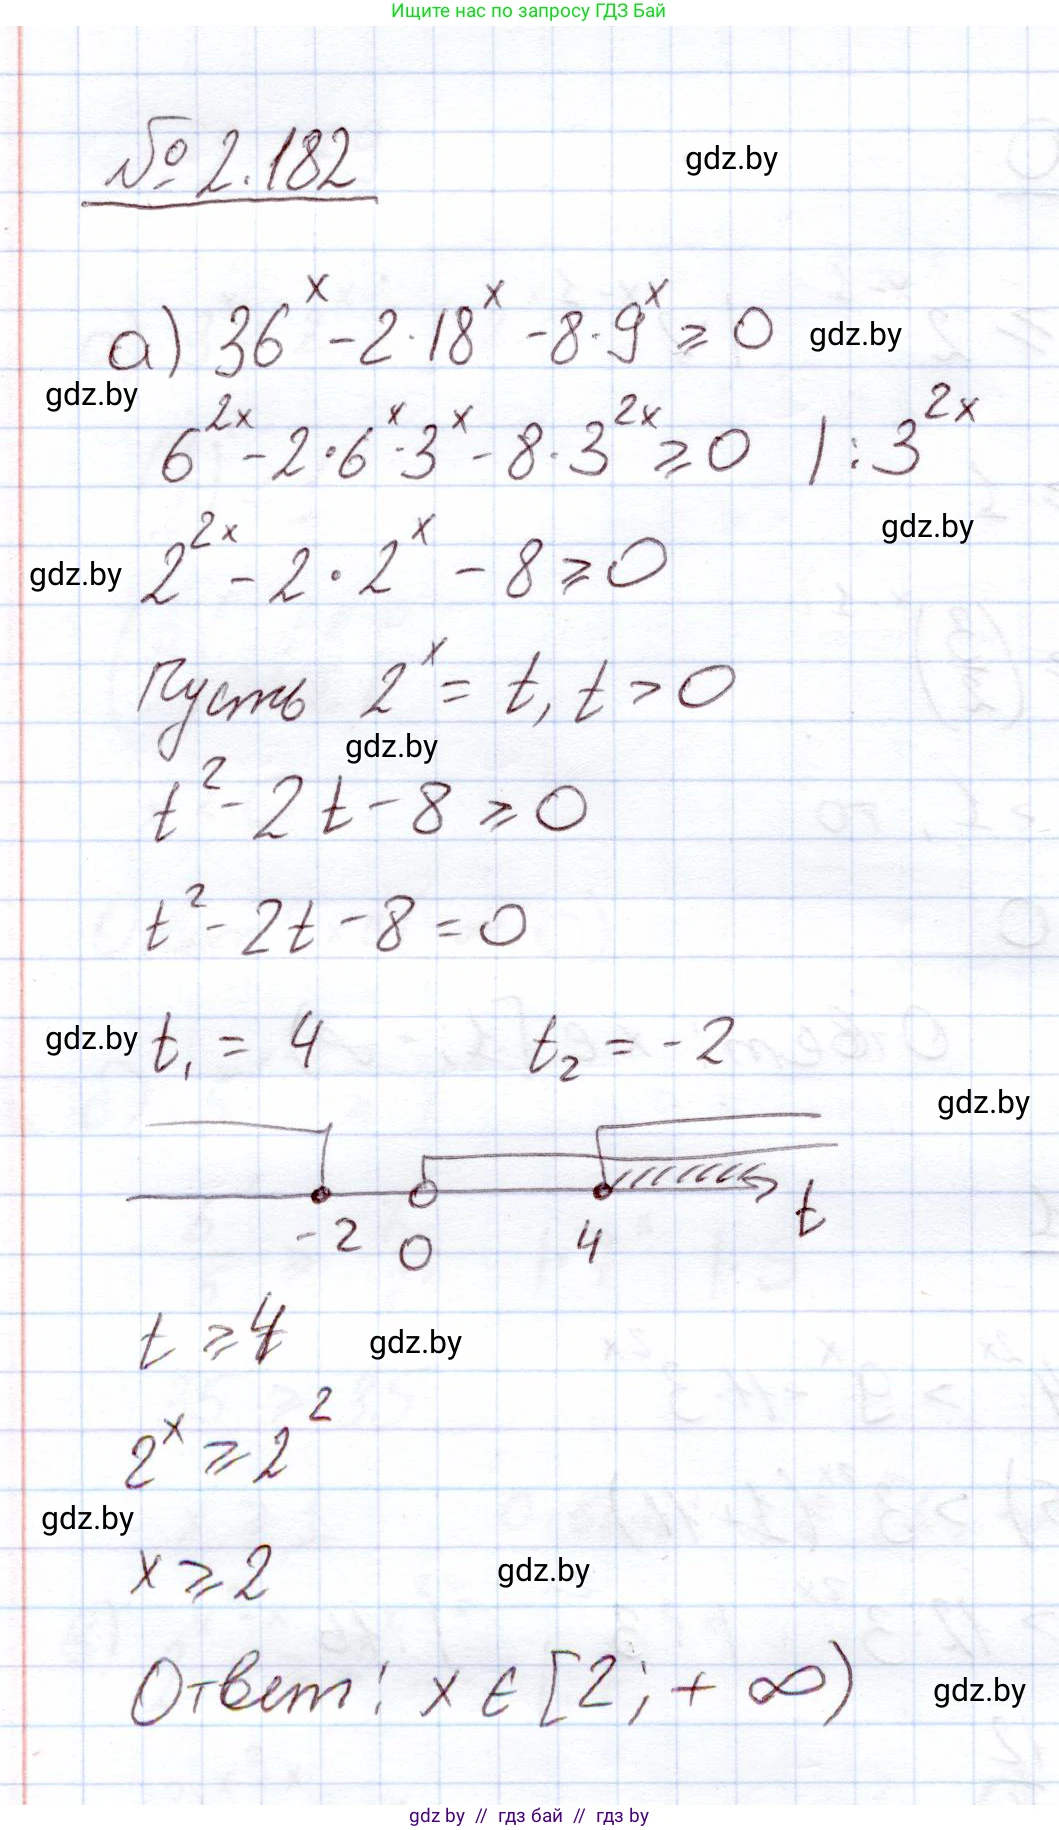 Ищите нас по запросу ГДЗ Бай
№ 2.182
gdz.by
а) 36^x - 2·18^x - 8·9^x ⩾ 0
gdz.by
gdz.by
6^{2x} - 2·6^x·3^x - 8·3^{2x} ⩾ 0 | : 3^{2x}
gdz.by
2^{2x} - 2·2^x - 8 ⩾ 0
gdz.by
Пусть 2^x = t, t > 0
gdz.by
t^2 - 2t - 8 ⩾ 0
t^2 - 2t - 8 = 0
gdz.by
t_1 = 4 t_2 = -2
gdz.by
-2 0 4 t
t ⩾ 4
gdz.by
2^x ⩾ 2^2
gdz.by
x ⩾ 2
gdz.by
Ответ: x ∈ [2; + ∞)
gdz.by
gdz by // гдз бай // гдз by